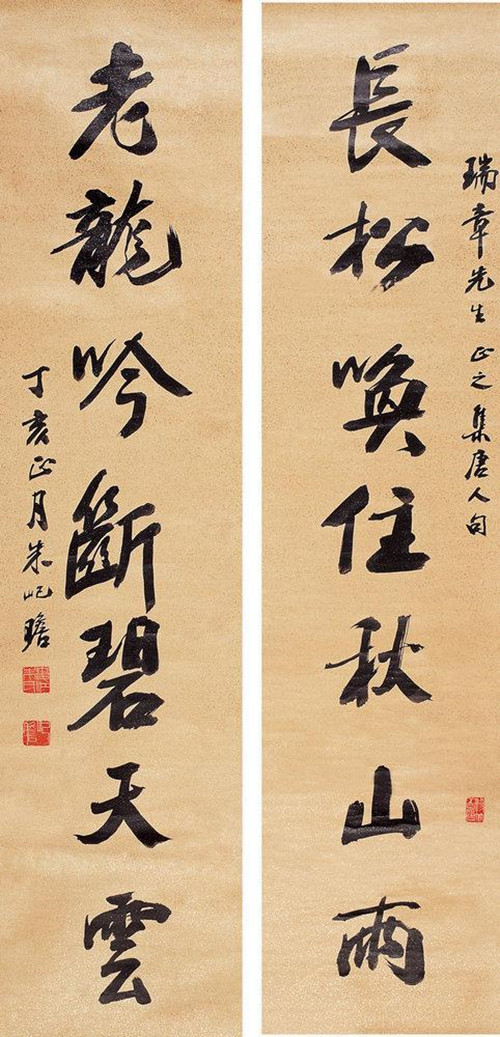 瑞章先生正之集唐人句
長松喚住秋山雨
老龍吟斷碧天雲
丁亥正月朱屺瞻